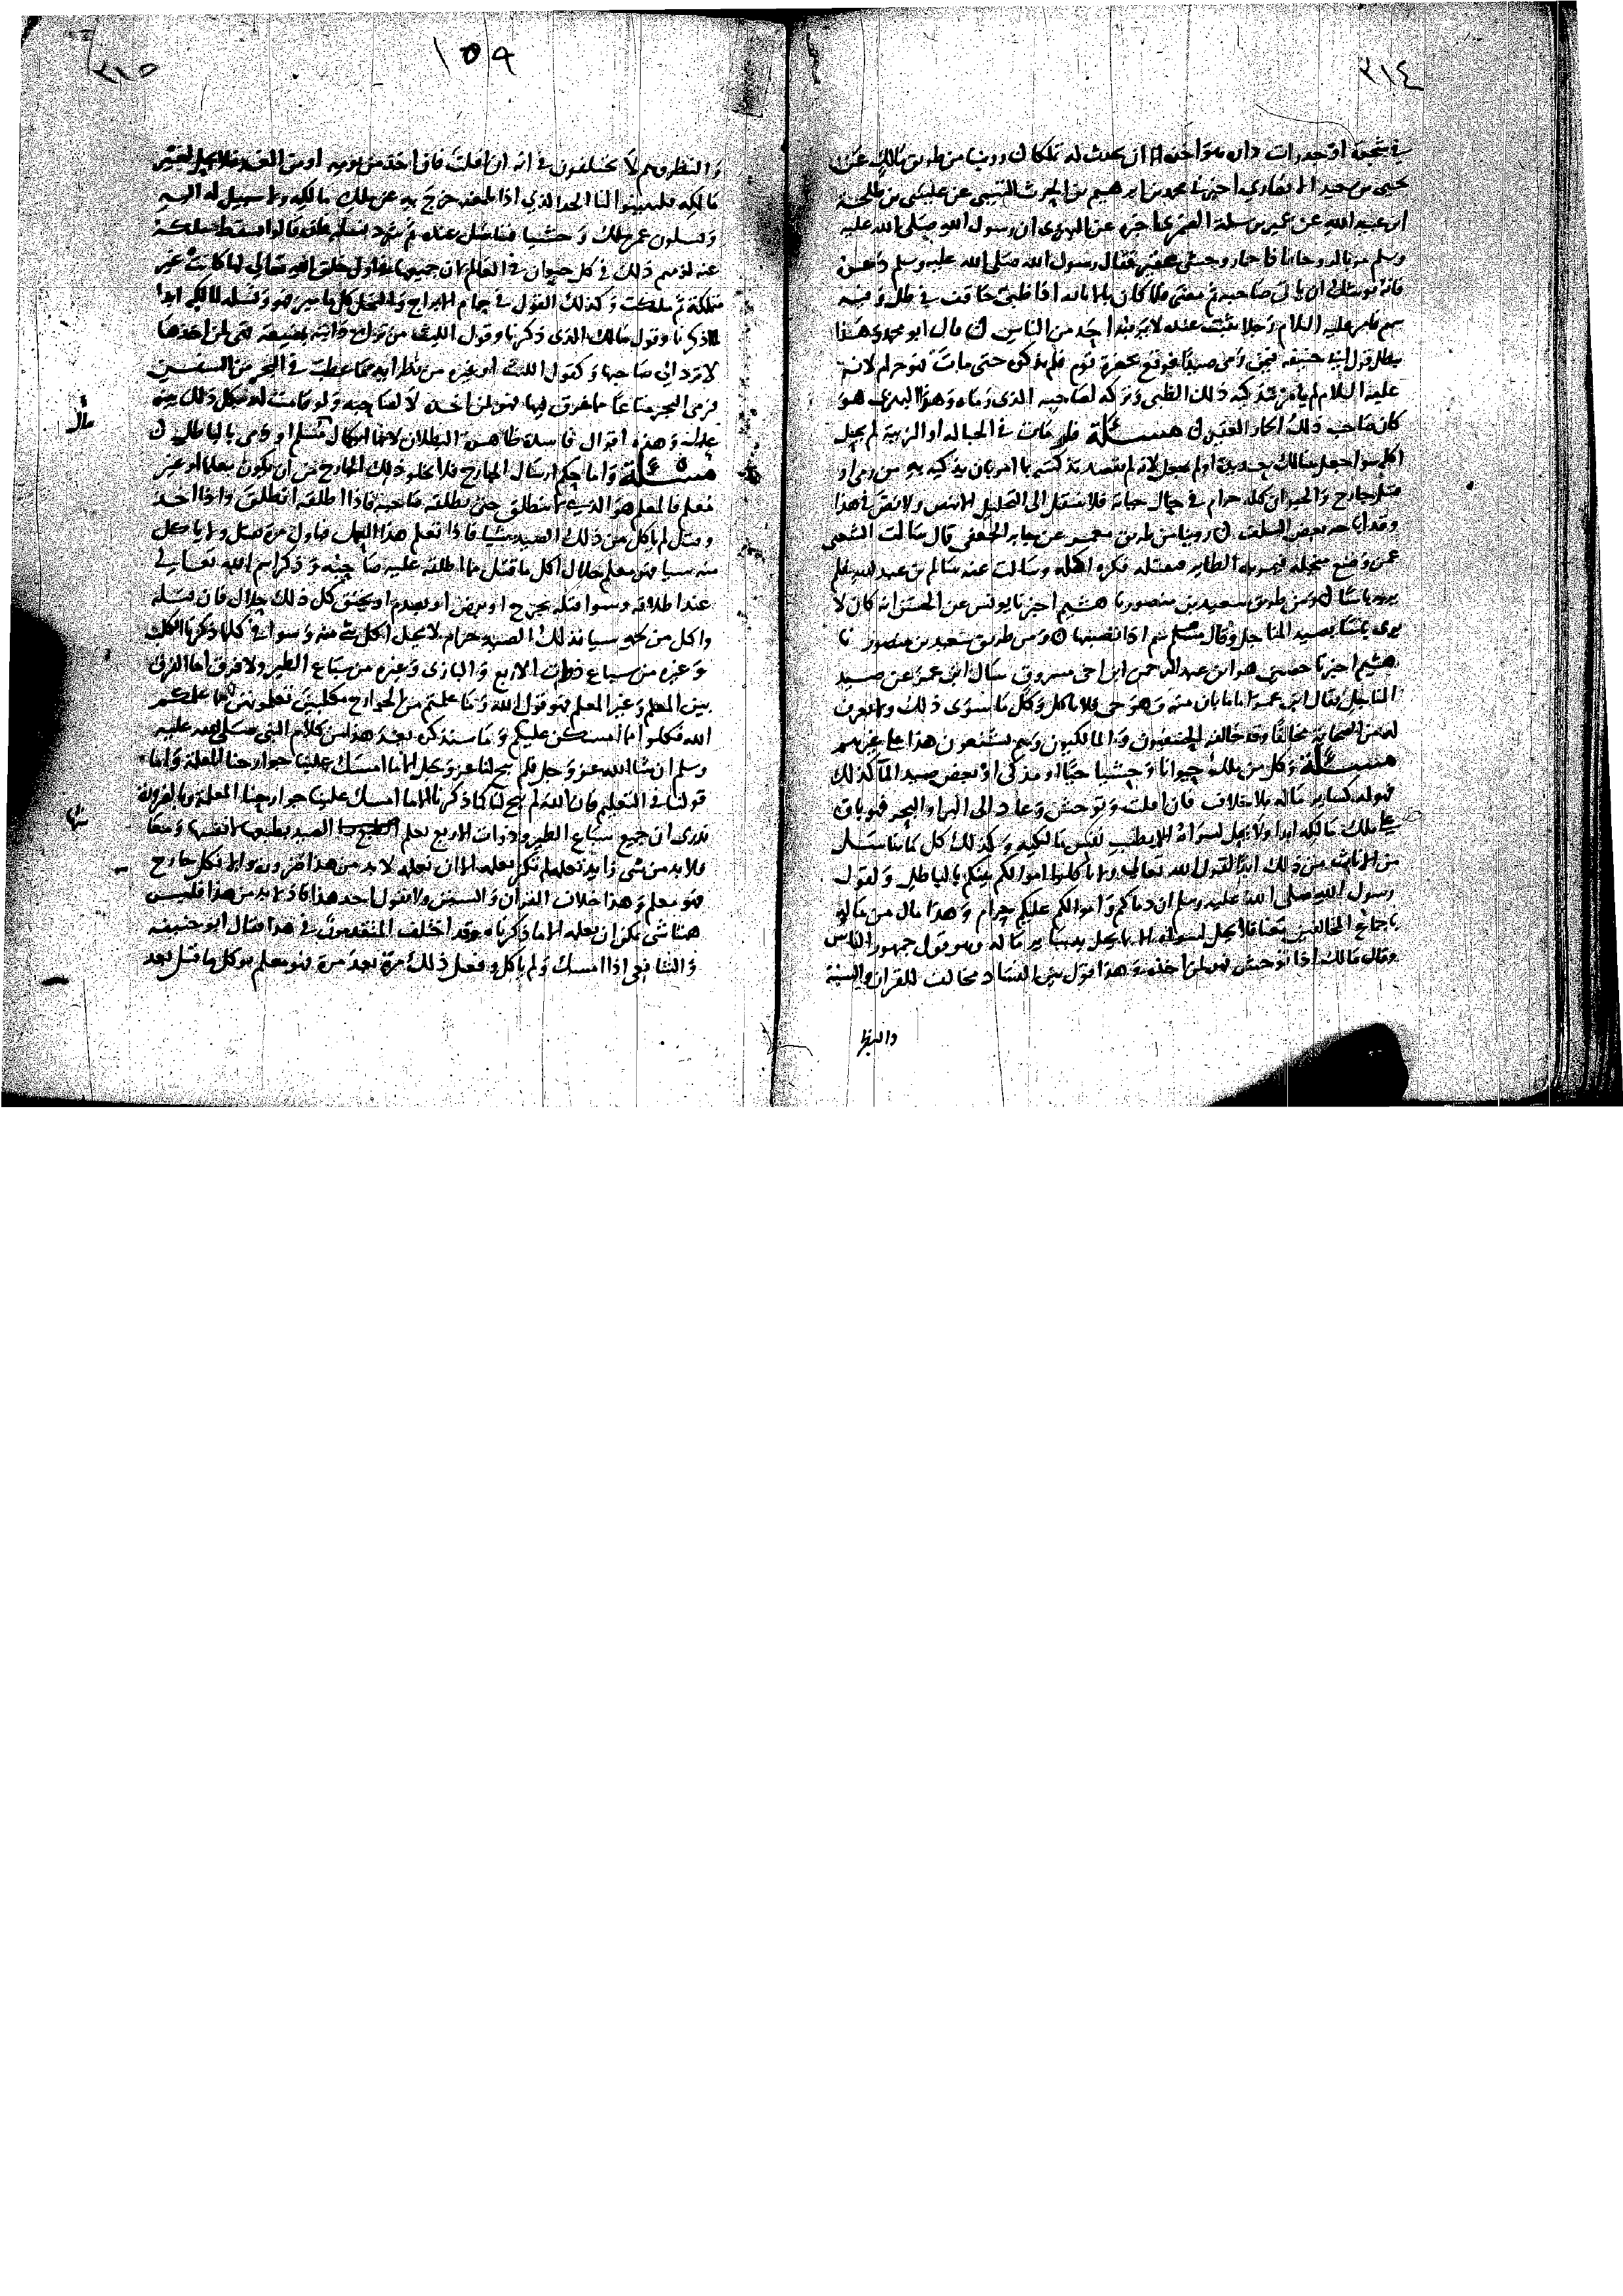 ٣١٤
في شجرة او جدرات دان هو واحد الا ان يحدث له تملكا روينا من طريق مالك عن
يحيى بن سعيد الانصاري اخبرنا محمد بن ابرهيم بن الحرث التيمي عن عيسى بن طلحة
ابن عبيد الله عن عمير بن سلمة الضمري اخبره عن البهزي ان رسول الله صلى الله عليه
وسلم مر بالروحا فاذا حمار وحشي عقير فقال رسول الله صلى الله عليه وسلم دعوه
فانه يوشك ان ياتي صاحبه ثم مضى فلما كان بالاثاية اذا ظبي حاقف في ظل وفيه
سهم فامر عليه السلام رجلا يثبت عنده لا يريبه احد من الناس قال ابو محمد وهذا
يبطل قول ابي حنيفة فيمن رمى صيدا فوقع بحضرة قوم فلم يذكوه حتى مات فهو حرام لانه
عليه السلام لم يامر بتذكية ذلك الظبي وتركه لصاحبه الذي رماه وهو البهزي هو
كان صاحب ذلك الحمار العقير مسئلة فلو مات في الحبالة او الزبية لم يحل
اكله سوا جعل هنالك حديدة او لم يجعل لانه لم يقصد تذكيته بما امر بان يذكيه به من رمي او
قتل جارح والحيوان كله حرام في حال حياته فلا ينتقل الى التحليل الا بنص ولا نص في هذا
وقد اباحه بعض السلف روينا من طريق معمر عن جابر الجعفي قال سالت الشعبي
عمن وضع منجله فيمر به الطاير فيقتله فكره اكله وسالت عنه سالم بن عبد الله فلم
ير به باسا ومن طريق سعيد بن منصور نا هشيم اخبرنا يونس عن الحسن انه كان لا
يرى باسا بصيد المناجل وقال سم اذا نصبتها ومن طريق سعيد بن منصور نا
هشيم اخبرنا حصين هو ابن عبد الرحمن ابن اخي مسروق سال ابن عمر عن صيد
المناجل فقال ابن عمر اما ما بان منه وهو حي فلا تاكل وكل ما سوى ذلك ولا يعرف
له من الصحابة مخالف وقد خالفه الحنفيون والمالكيون وهم يشنعون هذا على غيرهم
مسئلة وكل من ملك حيوانا وحشيا حيا او مذكى او بعض صيد الما كذلك
فهو له كساير ماله بلا خلاف فان افلت وتوحش وعاد الى البر او البحر فهو باق
على ملك مالكه ابدا ولا يحل لسواه الا بطيب نفس مالكه وكذلك كل ما تناسل
من الاناث من ذلك ابدا لقول الله تعالى ولا تاكلوا اموالكم بينكم بالباطل ولقول
رسول الله صلى الله عليه وسلم ان دماكم واموالكم عليكم حرام وهذا مال من ماله
باجماع المخالفين معنا فلا يحل لسواه الا بما يحل به ساير ماله وهو قول جمهور الناس
وقال مالك اذا توحش فهو لمن اخذه وهذا قول بين الفساد مخالف للقران والسنة
والنظر
١٥٩
٣١٥
والنظر وهم لا يختلفون في انه ان افلت فان اخذ من يومه او من الغد فلا يحل لغير
مالكه فليبينوا لنا الحد الذي اذا بلغه خرج به عن ملك مالكه ولا سبيل له اليه
ويسلون عمن ملك وحشيا فتناسل عنده ثم شرد نسلها فان قالوا يسقط ملكه
عنه لزمهم ذلك في كل حيوان في العالم لان جميعها في اول خلق الله تعالى لها كانت غير
متملكة ثم ملكت وكذلك القول في حمام الابراج والنحل كل ما ميز فهو ونسله لمالكه ابدا
لما ذكرنا وقول مالك الذي ذكرنا وقول الليث من ترك دابته بمضيعة فهي لمن اخذها
لا ترد الى صاحبها وكقول الليث او غيره من نظرايه ما عطب في البحر من السفن
فرمى البحر متاعا مما غرق فيها فهو لمن اخذه لا لصاحبه ولو قامت له بكل ذلك بينة
عدل وهذه اقوال فاسدة ظاهرة البطلان لانها ايكال مال مسلم او ذمي بالباطل
مسئلة واما حكم ارسال الجارح فلا يخلو ذلك الجارح من ان يكون معلما او غير
معلم فالمعلم هو الذي لا ينطلق حتى يطلقه صاحبه فاذا اطلقه انطلق واذا اخذ
وقتل لم ياكل من ذلك الصيد شيا فاذا تعلم هذا العمل فباول مرة يقتل ولا ياكل
منه شيا فهو معلم حلال اكل ما قتل مما اطلقه عليه صاحبه وذكر اسم الله تعالى
عند اطلاقه وسوا قتله بجرح او برض او بصدم او بخنق كل ذلك حلال فان قتله
واكل من لحمه شيا فذلك الصيد حرام لا يحل اكل شي منه وسوا في كل ما ذكرنا الكلب
وغيره من سباع ذوات الاربع والبازي وغيره من سباع الطير ولا فرق اما الفرق
بين المعلم وغير المعلم فهو قول الله وما علمتم من الجوارح مكلبين تعلمونهن مما علمكم
الله فكلوا مما امسكن عليكم وما سنذكره بعد هذا من كلام النبي صلى الله عليه
وسلم ان شا الله عز وجل فلم يبح لنا عز وجل الا ما امسك علينا جوارحنا المعلمة واما
قولنا في التعليم فان الله لم يبح لنا كما ذكرنا الا ما امسك علينا جوارحنا المعلمة وبالضرورة
ندري ان جميع سباع الطير وذوات الاربع تعلم الصيد بطبعها لانفسها ومعا
فلا بد من شي زايد تعلمه لم تكن تعلمه الا ان تعلمه لا بد من هذا ضرورة والا فكل جارح
فهو معلم وهذا خلاف القران والسنن ولا يقول احد هذا فاذ لا بد من هذا فليس
هنا شي يمكن ان يعلمه الا ما ذكرناه وقد اختلف المتقدمون في هذا فقال ابو حنيفة
والشافعي اذا امسك ولم ياكل وفعل ذلك مرة بعد مرة فهو معلم يوكل ما قتل بعد
مال